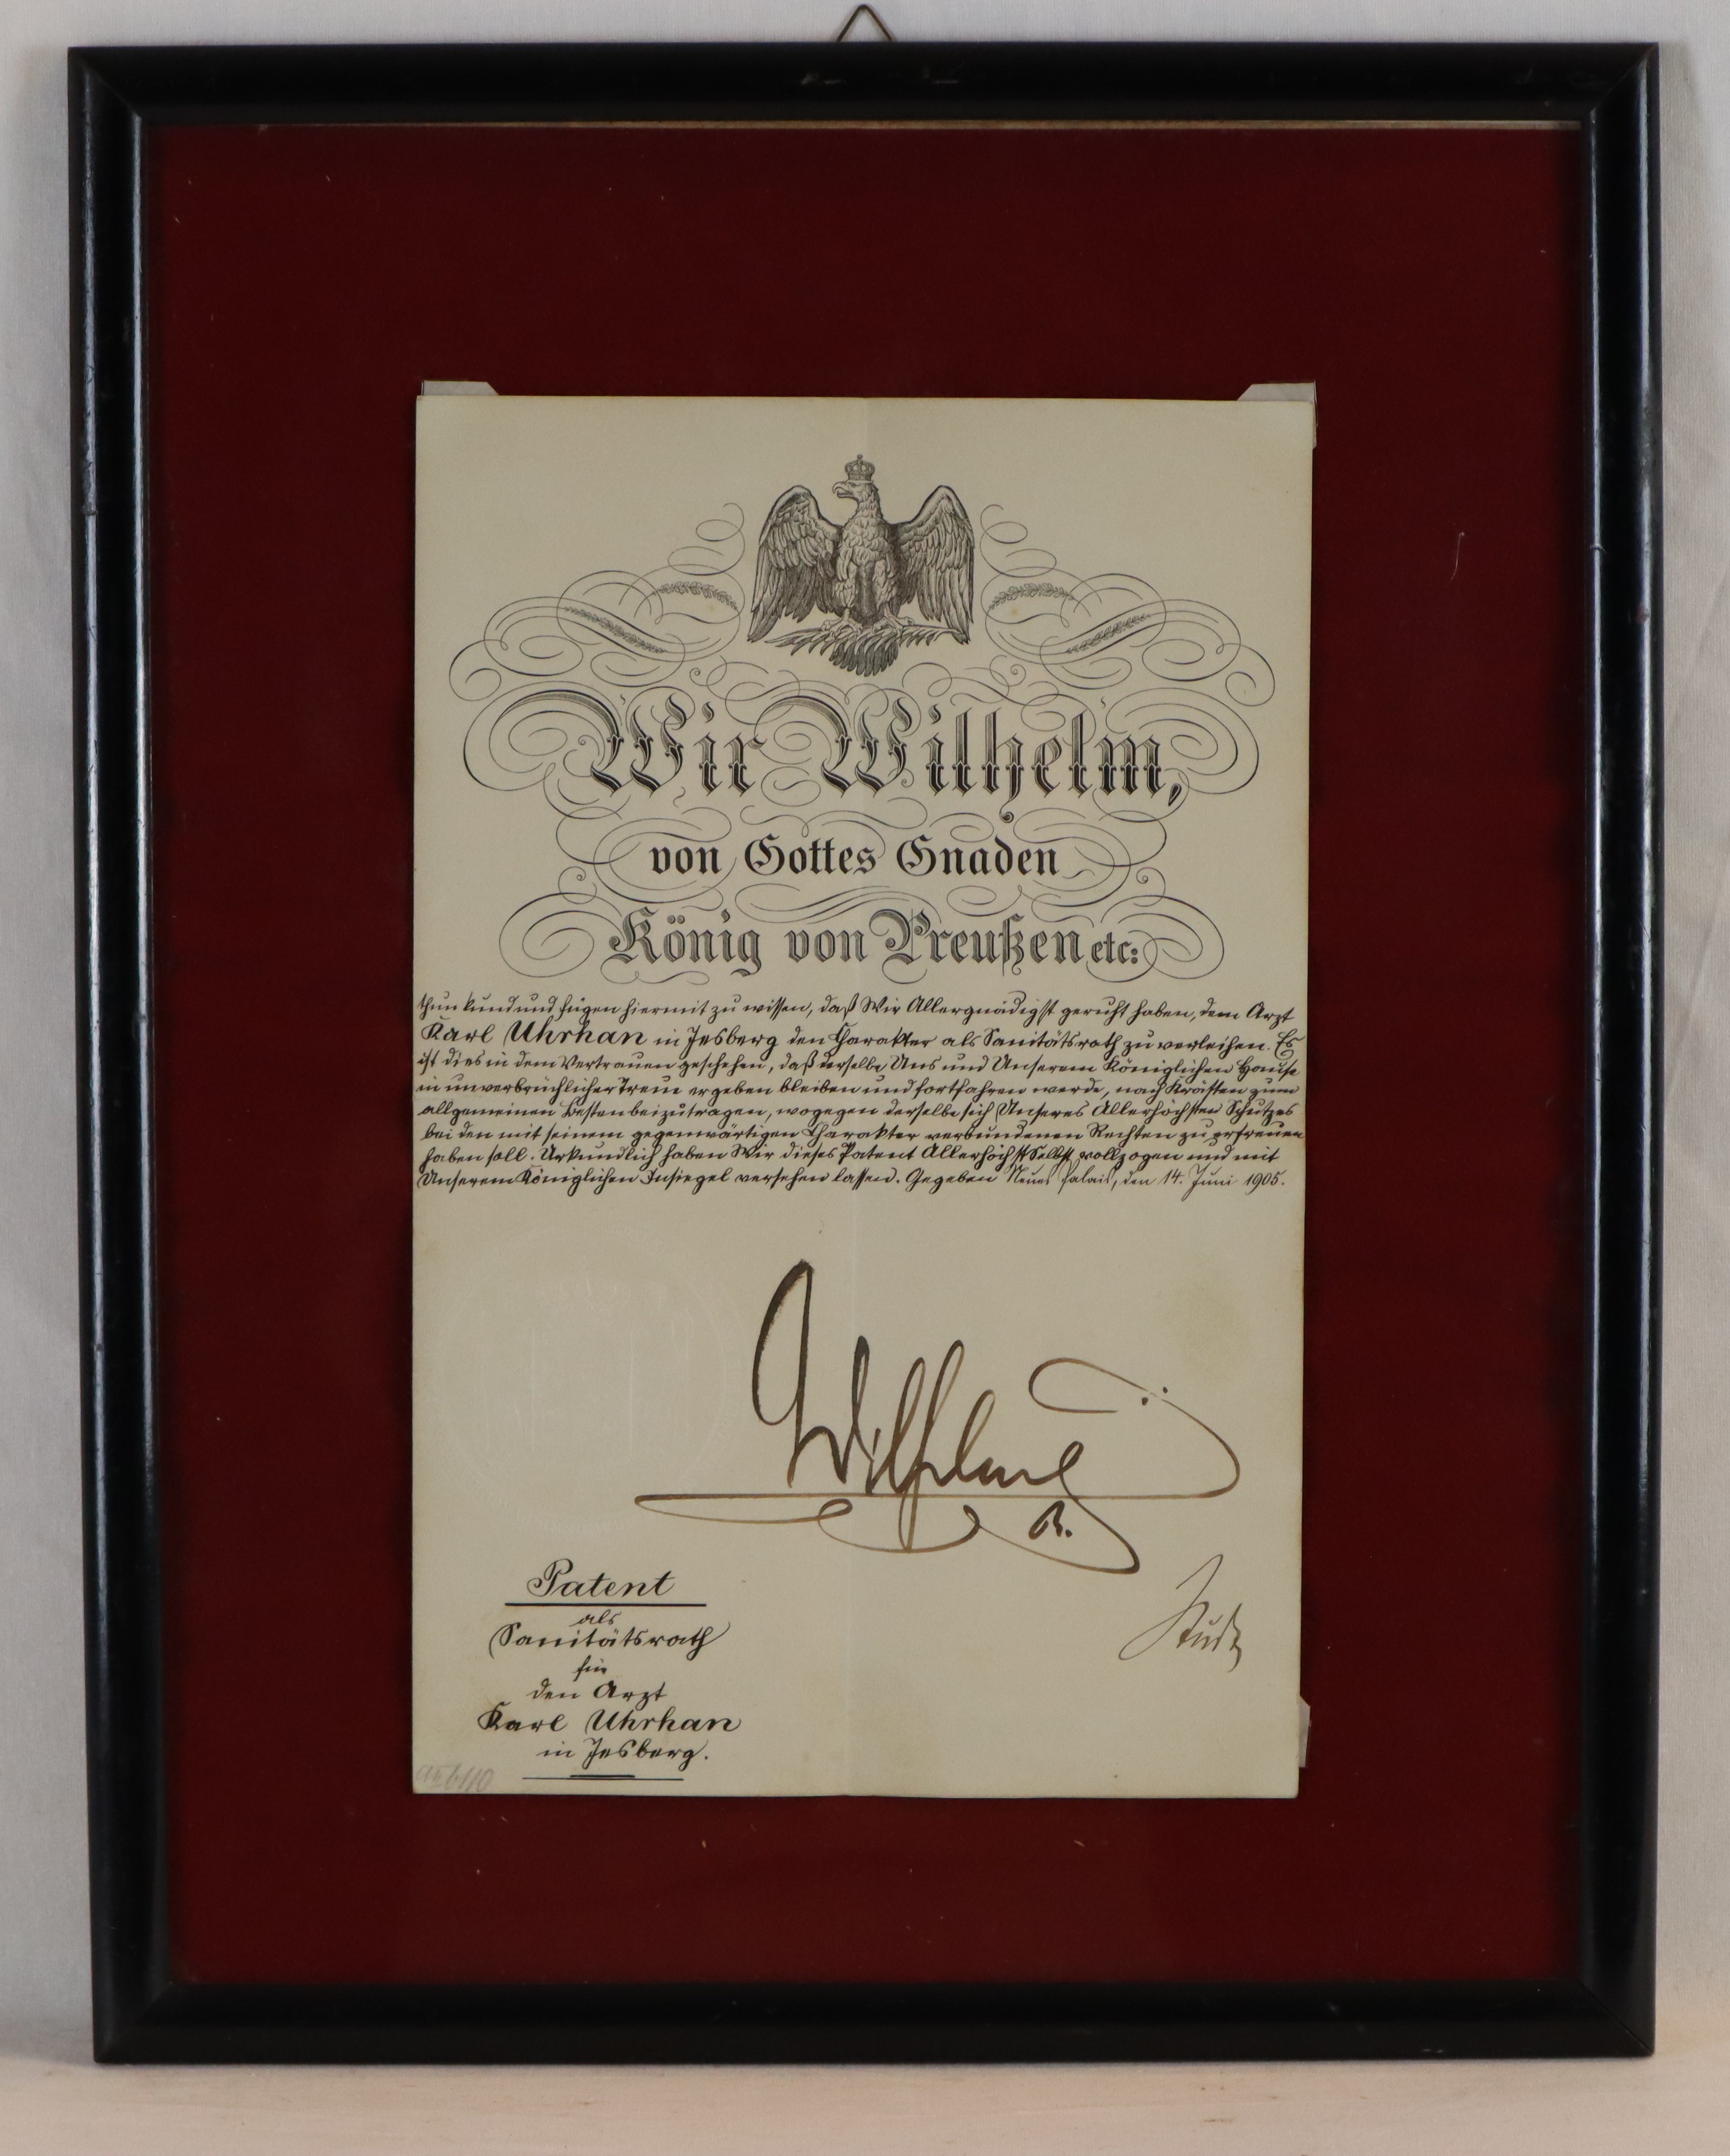 Wir Wilhelm,
von Gottes Gnaden
König von Preußen etc:
thun kund und fügen hiermit zu wissen, daß Wir Allergnädigst geruht haben, dem Arzt
Karl Uhrhan in Jesberg den Charakter als Sanitätsrath zu verleihen. Es
ist dies in dem Vertrauen geschehen, daß derselbe Uns und Unserem Königlichen Hause
in unverbrüchlicher Treue ergeben bleiben und fortfahren werde, nach Kräften zum
allgemeinen Besten beizutragen, wogegen derselbe sich Unseres Allerhöchsten Schutzes
bei den mit seinem gegenwärtigen Charakter verbundenen Rechten zu erfreuen
haben soll. Urkundlich haben Wir dieses Patent Allerhöchst Selbst vollzogen und mit
Unserem Königlichen Insiegel versehen lassen. Gegeben Neues Palais, den 14. Juni 1905.
Wilhelm
R.
Studt
Patent
als
Sanitätsrath
für
den Arzt
Karl Uhrhan
in Jesberg.